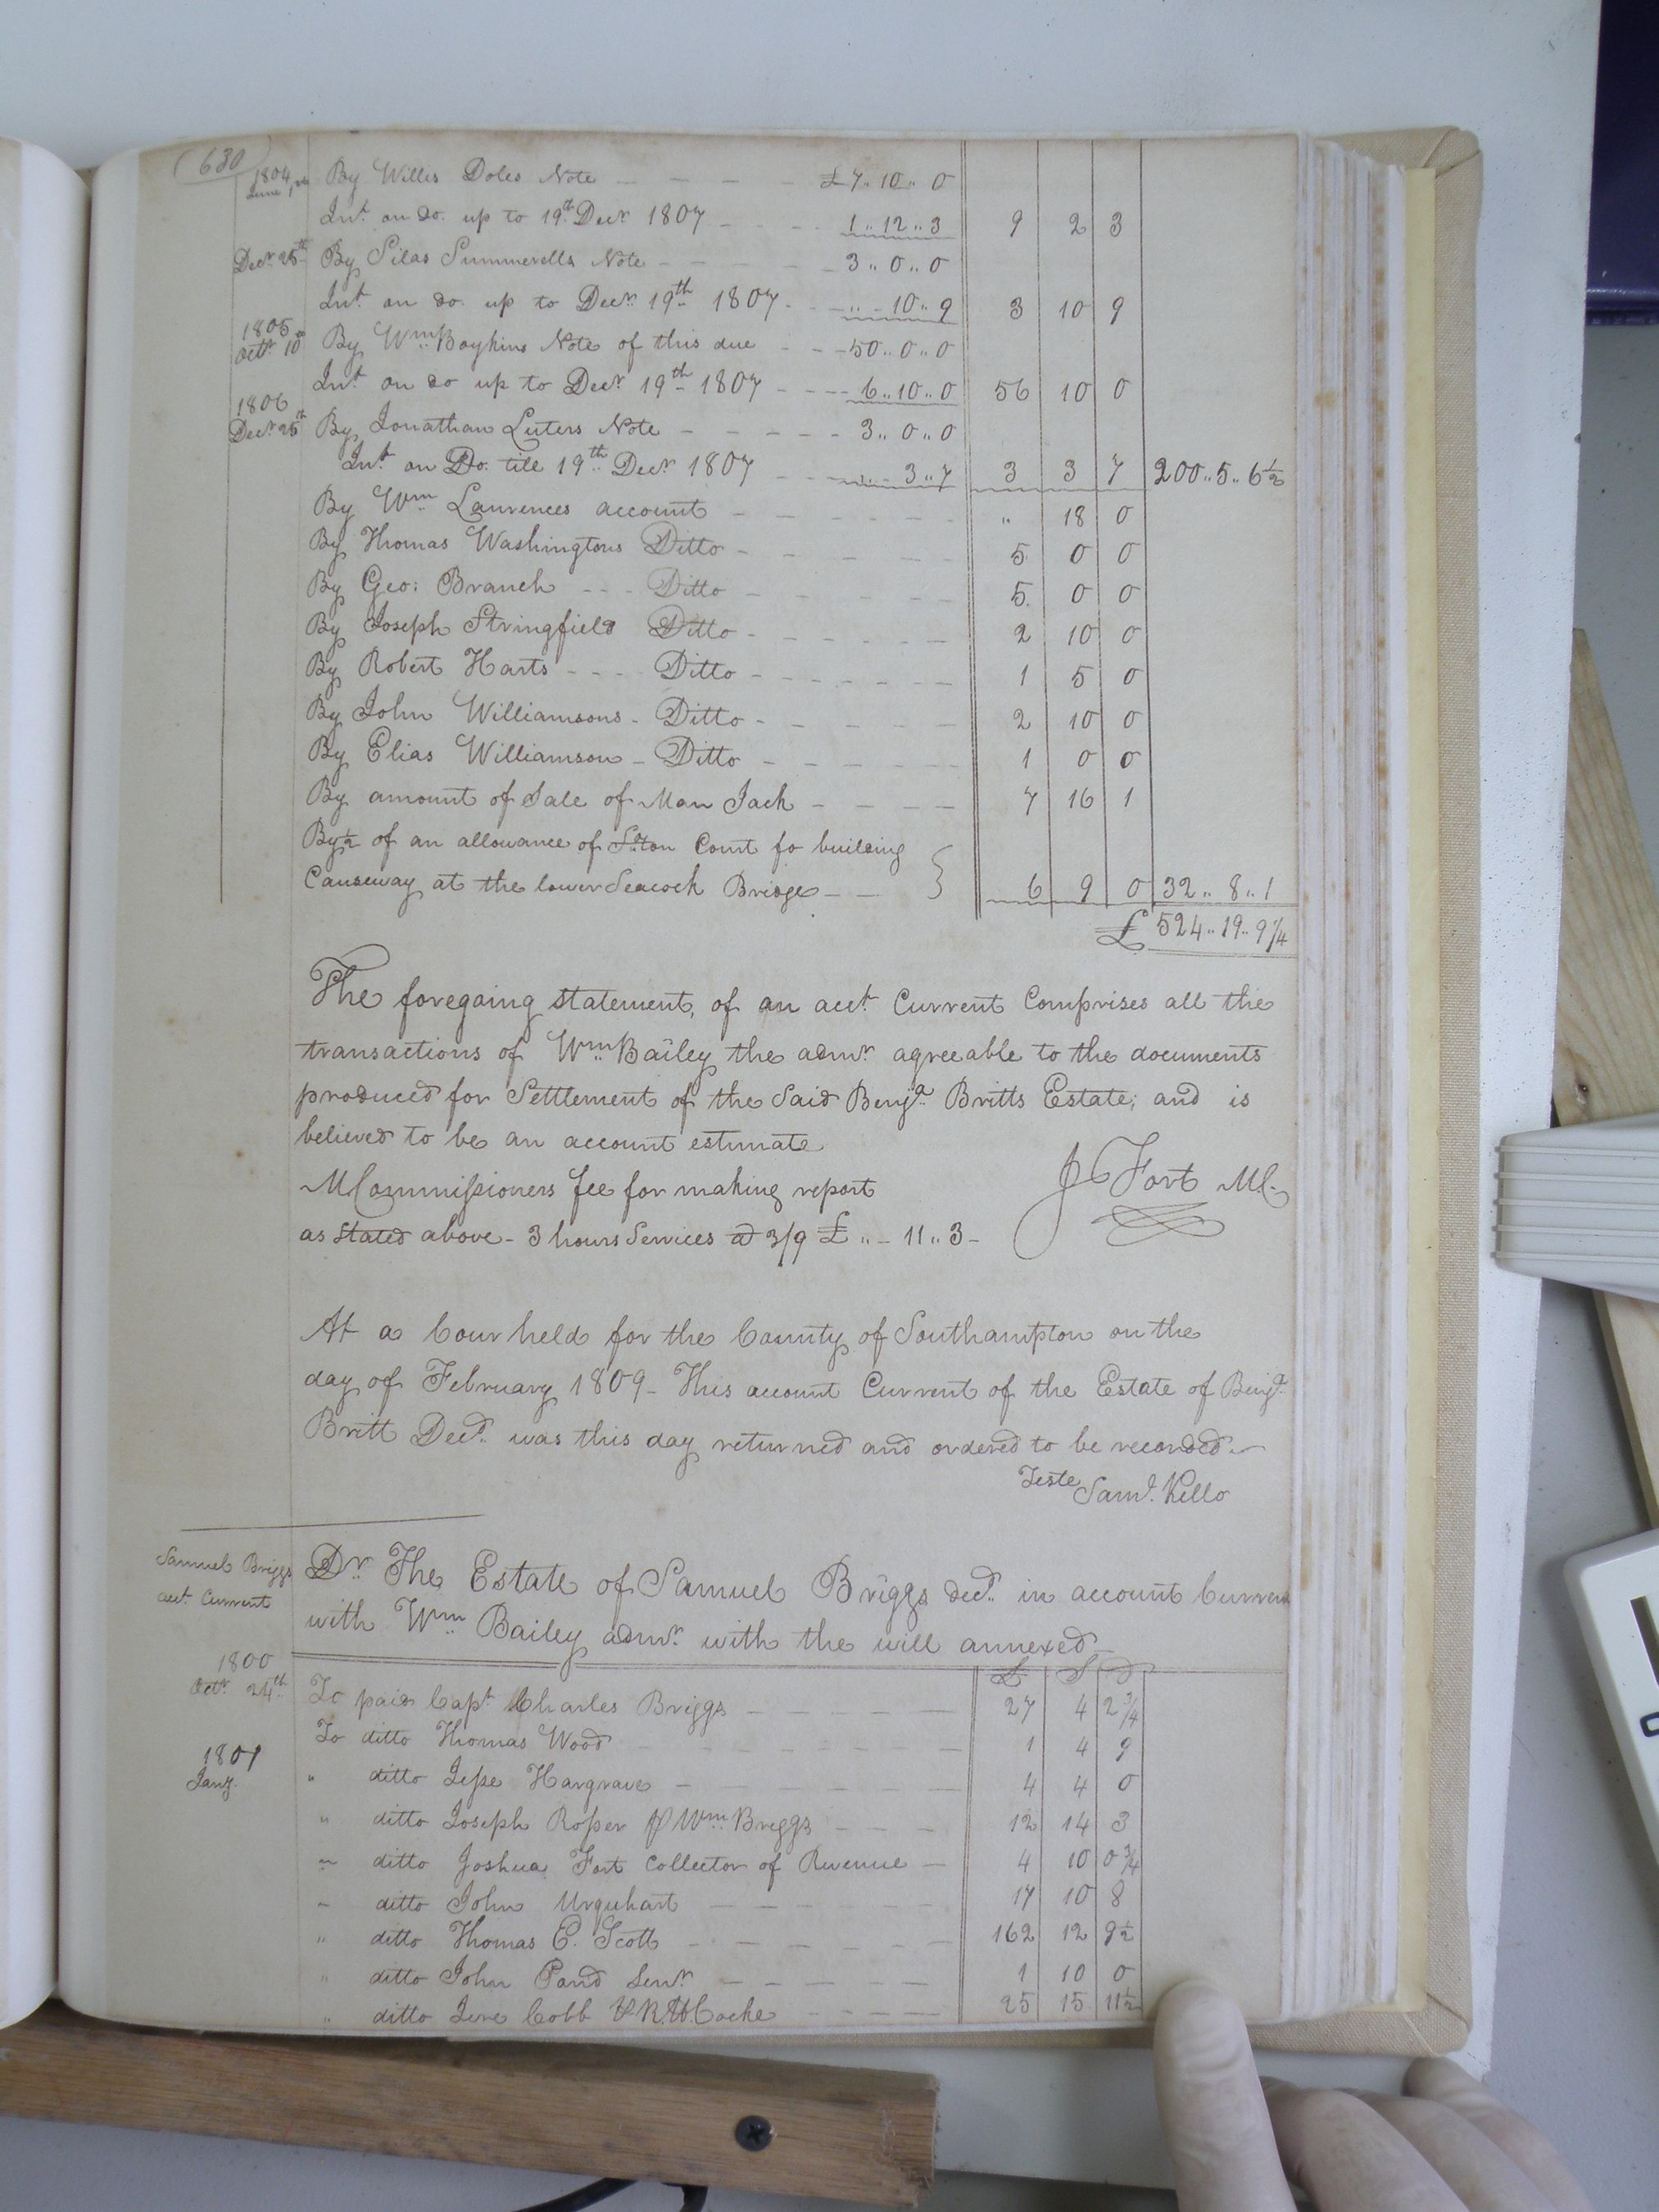 (630)
1804 June 1, By Willis Doles Note £7..10..0
Int. on do. up to 19th Decr. 1807 1..12..3 9 2 3
Decr. 25th By Silas Summerells Note 3..0..0
Int. on do. up to Decr. 19th 1807 .. 10..9 3 10 9
1805
Octr. 10 By Wm. Boykins Note of this due 50..0..0
Int. on do up to Decr. 19th 1807 6..10..0 56 10 0
1806
Decr. 25th By Jonathan Luters Note 3..0..0
Int. on Do. till 19th Decr. 1807 .. 3..7 3 3 7 200..5..6½
By Wm. Laurences account .. 18 0
By Thomas Washingtons Ditto 5 0 0
By Geo: Branch Ditto 5 0 0
By Joseph Stringfield Ditto 2 10 0
By Robert Harts Ditto 1 5 0
By John Williamsons Ditto 2 10 0
By Elias Williamson Ditto 1 0 0
By amount of Sale of Man Jack 7 16 1
By ½ of an allowance of Soton Court fo builcing
Causeway at the lower Seacock Bridge 6 9 0 32..8..1
£ 524..19..9¼
The foregoing statement, of an acct. Current Comprises all the
transactions of Wm. Bailey the admr. agreeable to the documents
produced for Settlement of the Said Benja. Britts Estate; and is
believed to be an account estimate
MCommissioners fee for making report
J Fort MC.
as Stated above - 3 hours Services a 3/9 £ .. - 11..3 -
At a Cour held for the County of Southampton on the
day of February 1809 - This account Current of the Estate of Benja.
Britt Decd. was this day returned and ordered to be recorded
Teste Saml. Kello
Samuel Briggs
acct. Current
Dr. The Estate of Samuel Briggs decd. in account Current
with Wm. Bailey admr. with the will annexed
£ S D
1800
Octr. 24th To paid Capt. Charles Briggs 27 4 2¾
To ditto Thomas Wood 1 4 9
1801
Jany. " ditto Jesse Hargrave 4 4 0
" ditto Joseph Rosser Wm. Briggs 12 14 3
" ditto Joshua Fort Collector of Revenue 4 10 0¾
" ditto John Urquhart 17 10 8
" ditto Thomas E. Scott 162 12 9½
" ditto John Pond Senr. 1 10 0
" ditto Jere Cobb Cocke 25 15 11½